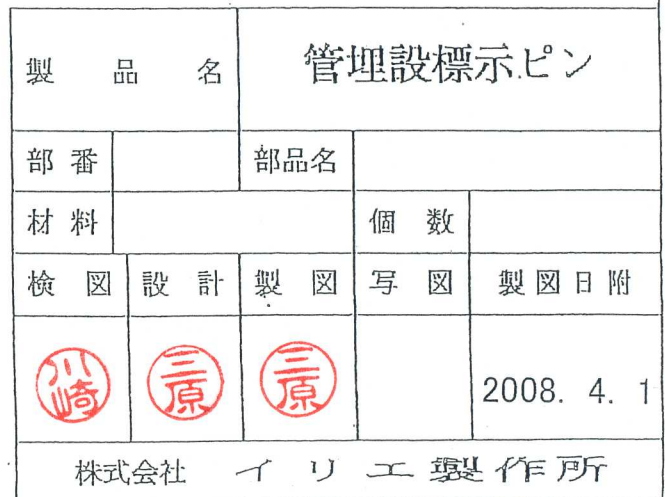 製品名 管埋設標示ピン
部番 部品名
材料 個数
検図 設計 製図 写図 製図日附
川崎 三原 三原 2008. 4. 1
株式会社 イリエ製作所